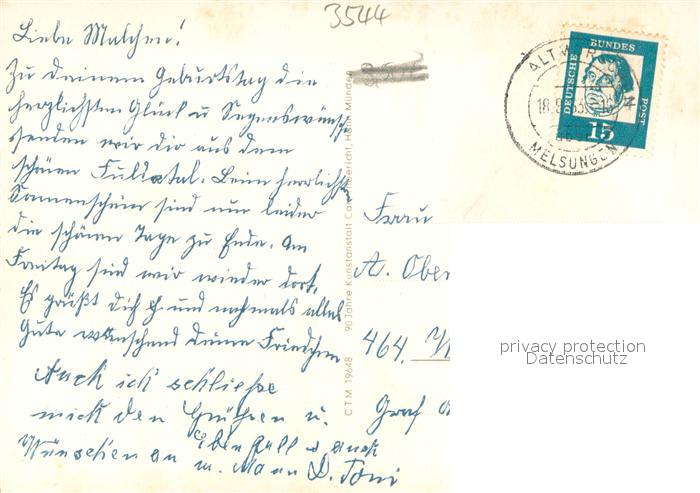 3544
Liebe Malchen!
Zu deinem Geburtstag die
herzlichsten Glück u Segenswünsche
senden wir dir aus dem
schönen Fuldatal. Beim herrlichsten
Sonnenschein sind nur leider
die schönen Tage zu Ende. Am
Freitag sind wir wieder dort.
Es grüßt dich und nochmals alles
Gute wünschend deine Friedchen
Auch ich schließe
mich den Grüßen u.
Wünschen an
u. Mann D. Toni
C.T.M. 19648 90 Jahre Kunstanstalt Carl Thoericht, Hann. Münden
DEUTSCHE BUNDESPOST
15
MELSUNGEN
Frau
A. Ober
464.
Graf
privacy protection
Datenschutz